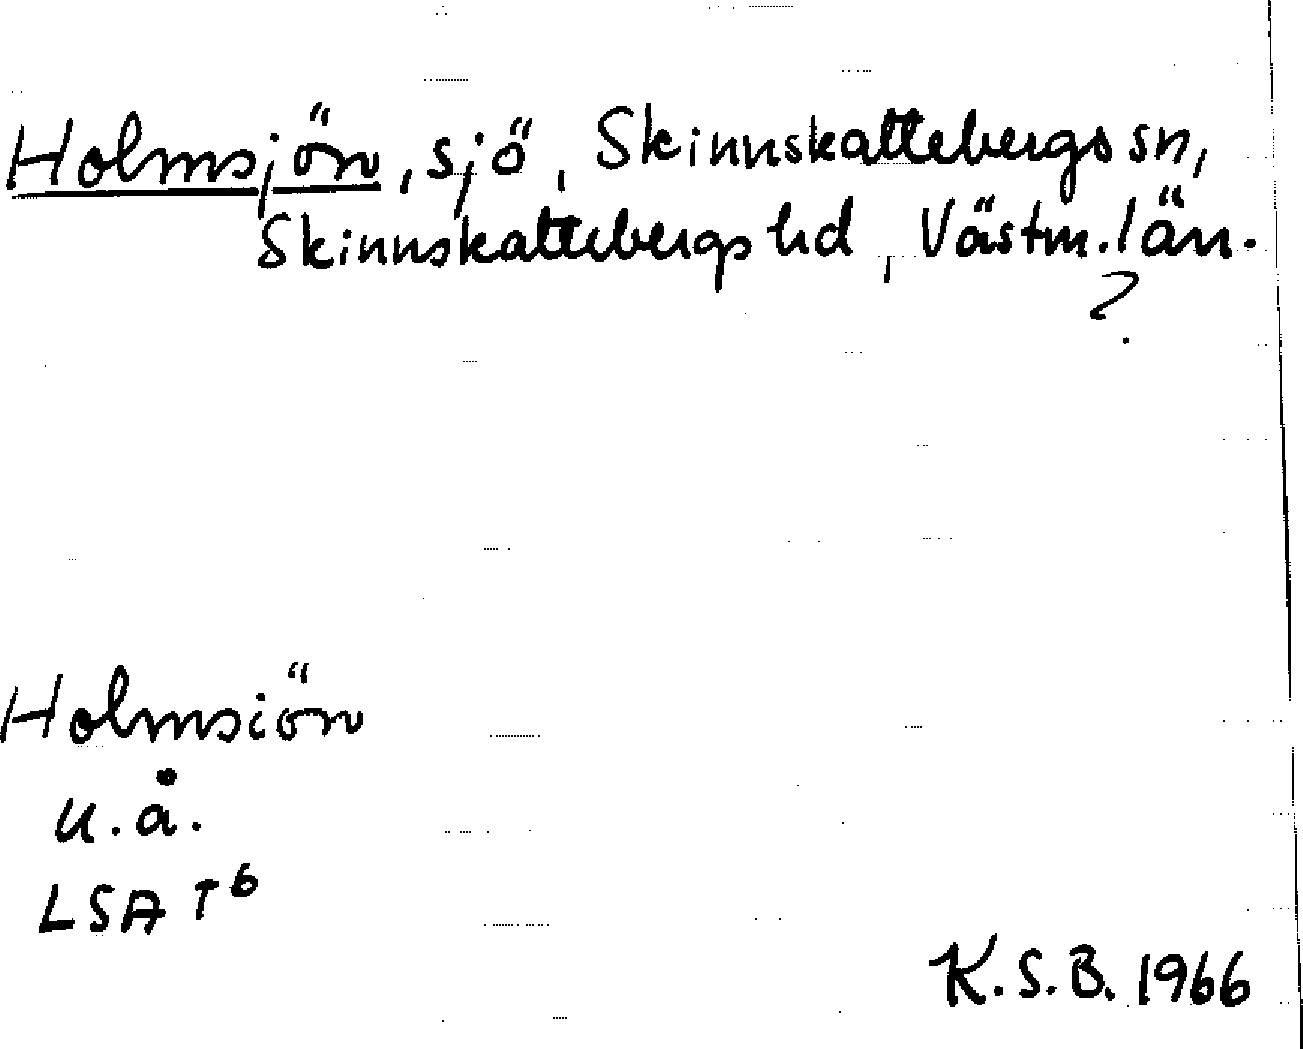 Holmsjön, sjö, Skinnskattebergs sn,
Skinnskattebergs hd, Västm. län.
?
Holmsiön
u.å.
LSA T6
K.S.B. 1966